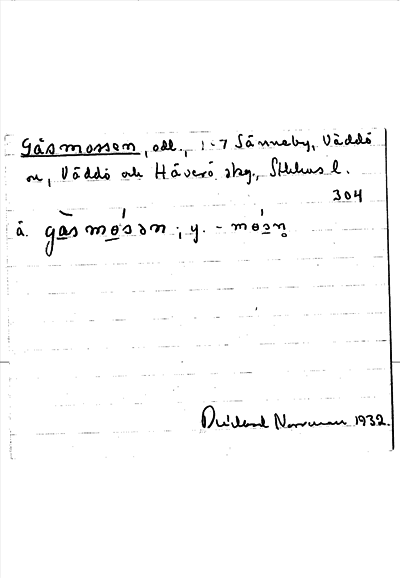 Gåsmossen, odl., 1-7 Sänneby, Väddö
sn, Väddö och Häverö skg., Sthlms l.
304
ä. gàsmósən; y. -mósn̥
Norrman 1932.